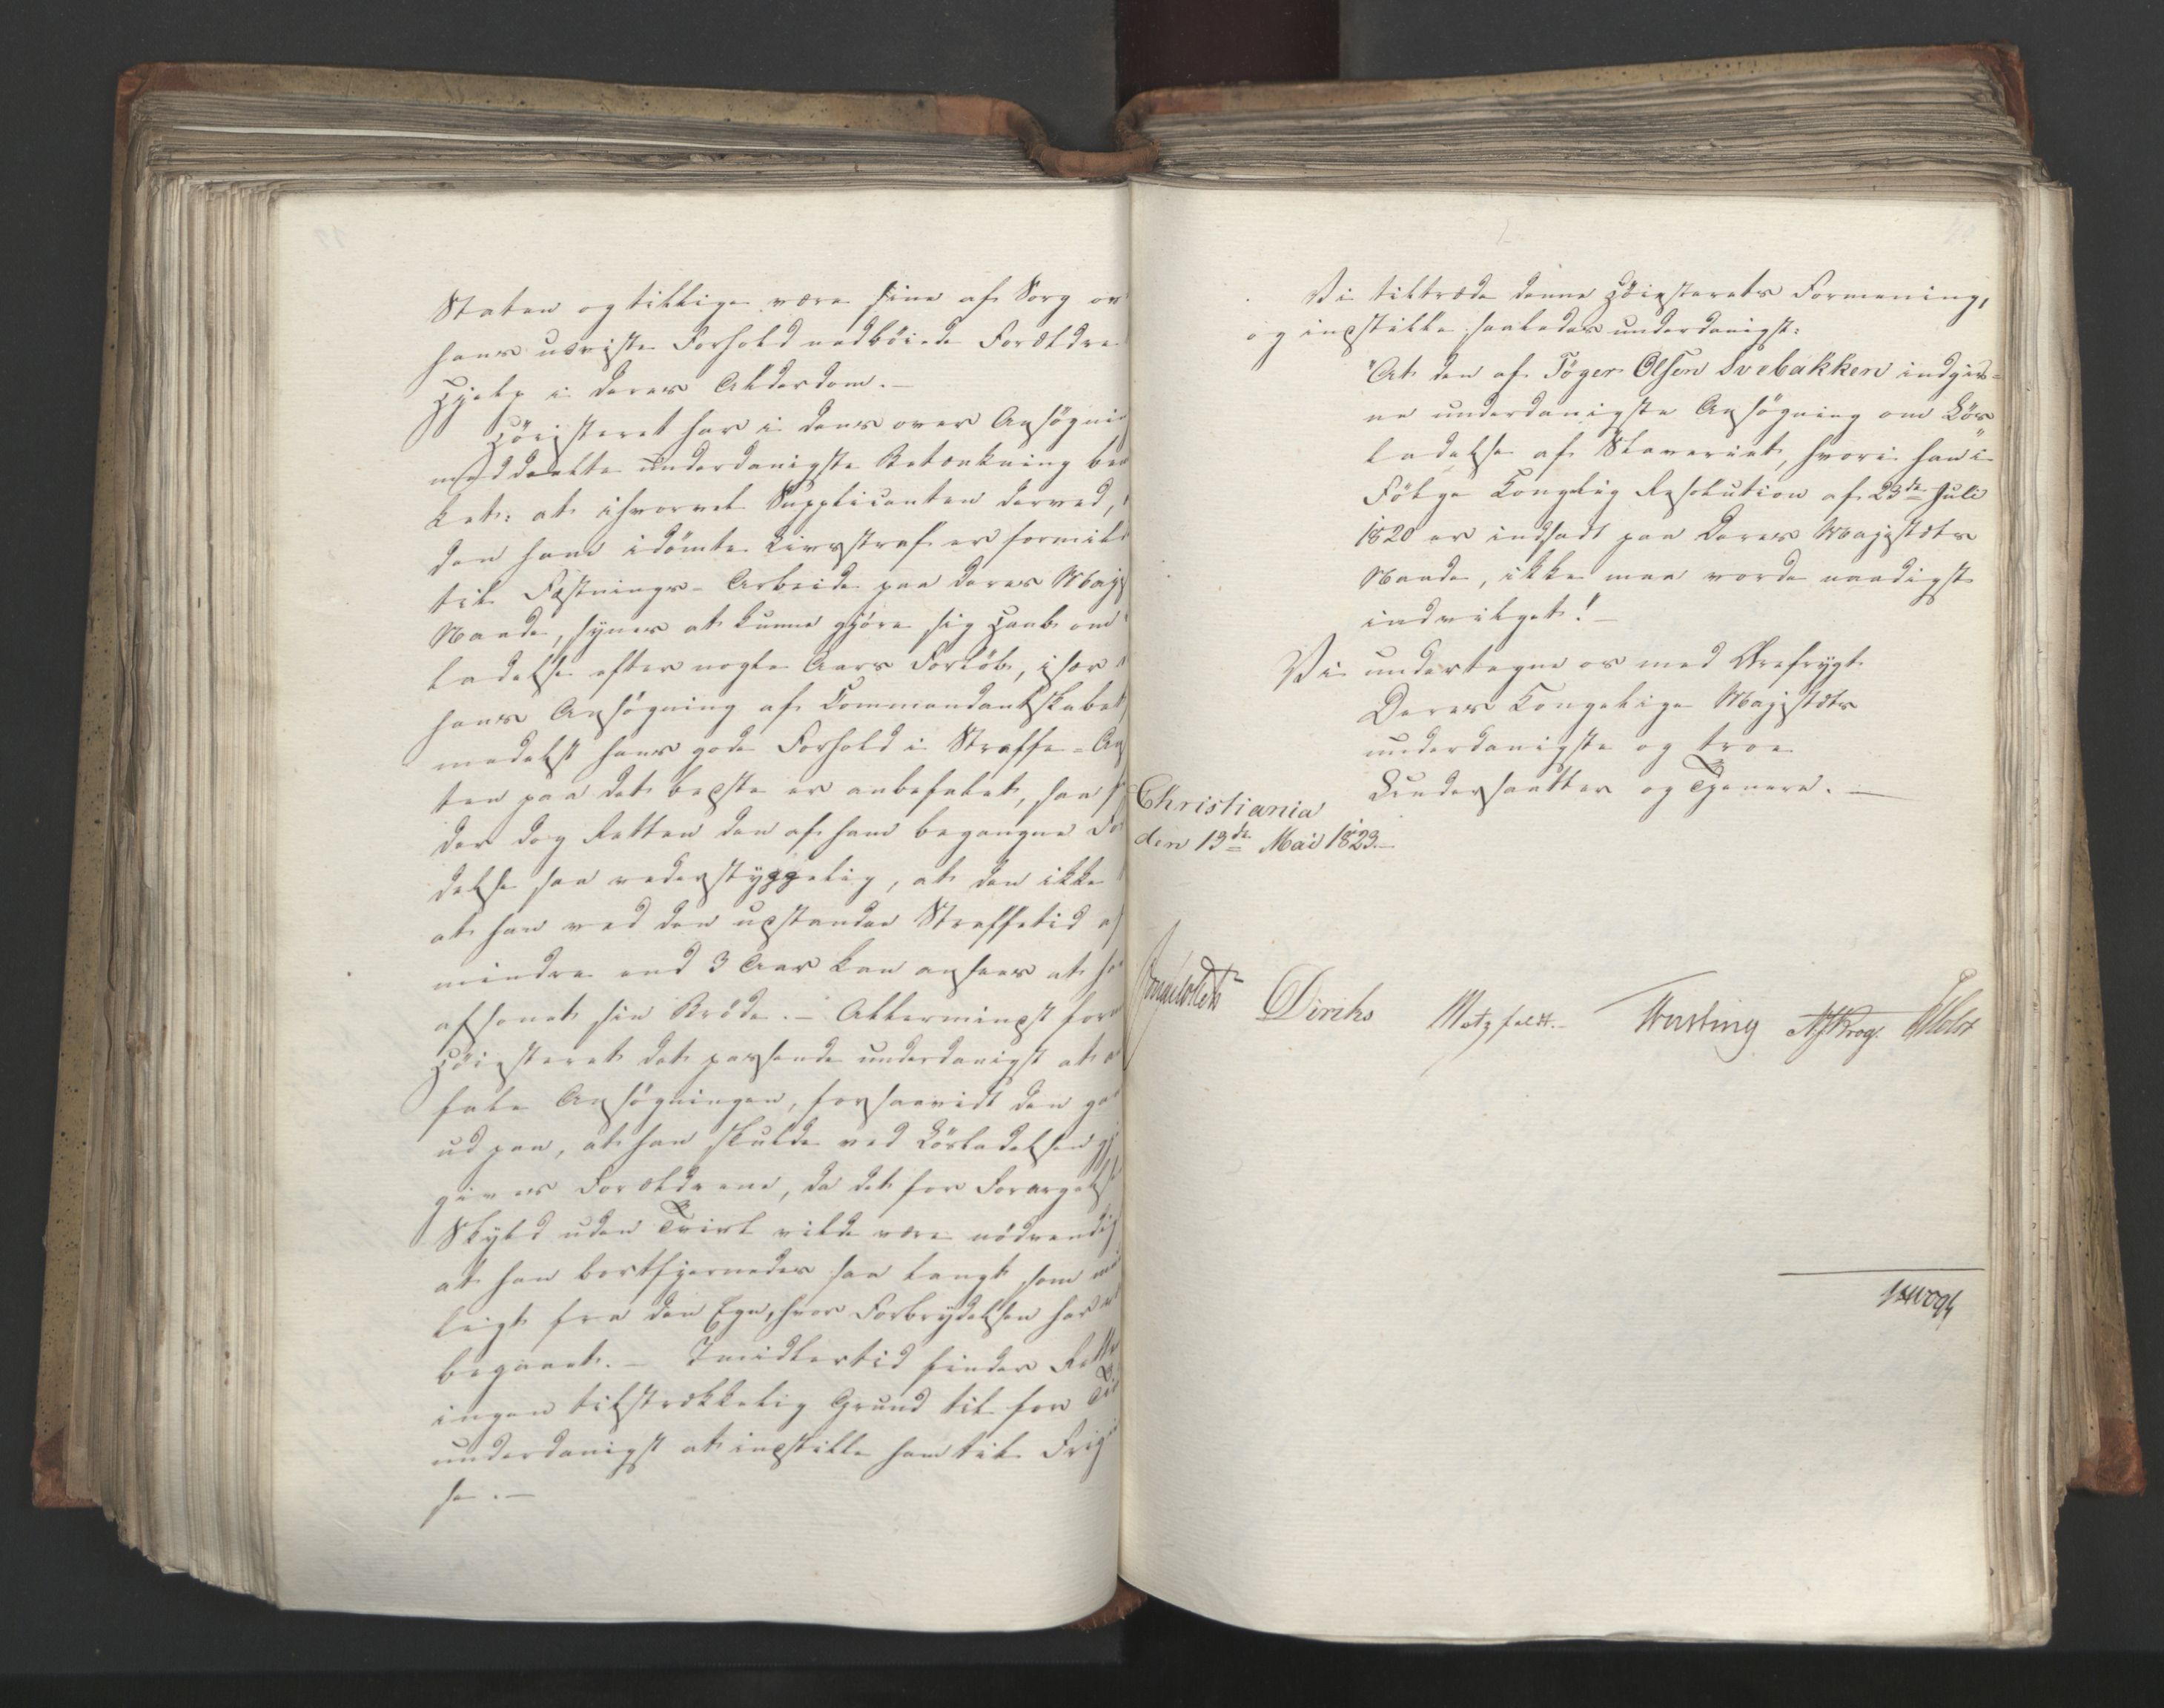 Staten og tillige være sine af Sorg ov
hans udviste Forhold nedböiede Forældre
Hjelp i deres Alderdom.—
Höiesteret har i dens over Ansögnin
meddeelte underdanigste Betænkning be
ket: at ihvorvel Supplicanten derved,
den ham idömte Livsstraf er formild
til Fæstnings-Arbeide paa Deres Maje
Naade, synes at kunne gjöre sig Haab om
ladelse efter nogle Aars Forlöb, især
hans Ansögning af Commandantskabet
medelst hans gode Forhold i Straffe-An
ten paa det beste er anbefalet, saa
der dog Retten den af ham begangne For
delse saa vederstyggelig, at den ikke
at han ved den udstandne Straffetid af
mindre end 3 Aar kan ansees at ha
afsonet sin Bröde.— Allermindst form
Höiesteret det passende underdanigst at
fale Ansögningen, forsaavidt den gaa
ud paa, at han skulde ved Lösladelsen gj
gives Forældrene, da det for Forargelse
Skyld uden Tvivl vilde være nödvendig
at han bortfjernedes saa langt som mu
ligt fra den Egn, hvor Forbrydelsen har
begaaet.— Imidlertid finder Rette
ingen tilstrækkelig Grund til for Ti
underdanigst at indstille ham til Frig
se.—
Vi tiltræde denne Höiesterets Formening,
og indstille saaledes underdanigst:
"At den af Töger Olsen Svebakken indgiv=
ne underdanigste Ansögning om Lös=
ladelse af Slaveriet, hvori han i
Fölge Kongelig Resolution af 23de Juli
1820 er indsadt paa Deres Majestæts
Naade, ikke maa vorde naadigst
indvilget!"—
Vi undertegne os med Ærefrygt
Deres Kongelige Majestæts
underdanigste og troe
Undersaatter og Tjenere.—
Christiania
den 13de Mai 1823.—
Diriks Motzfeldt.— Krog. Holst
Vogt